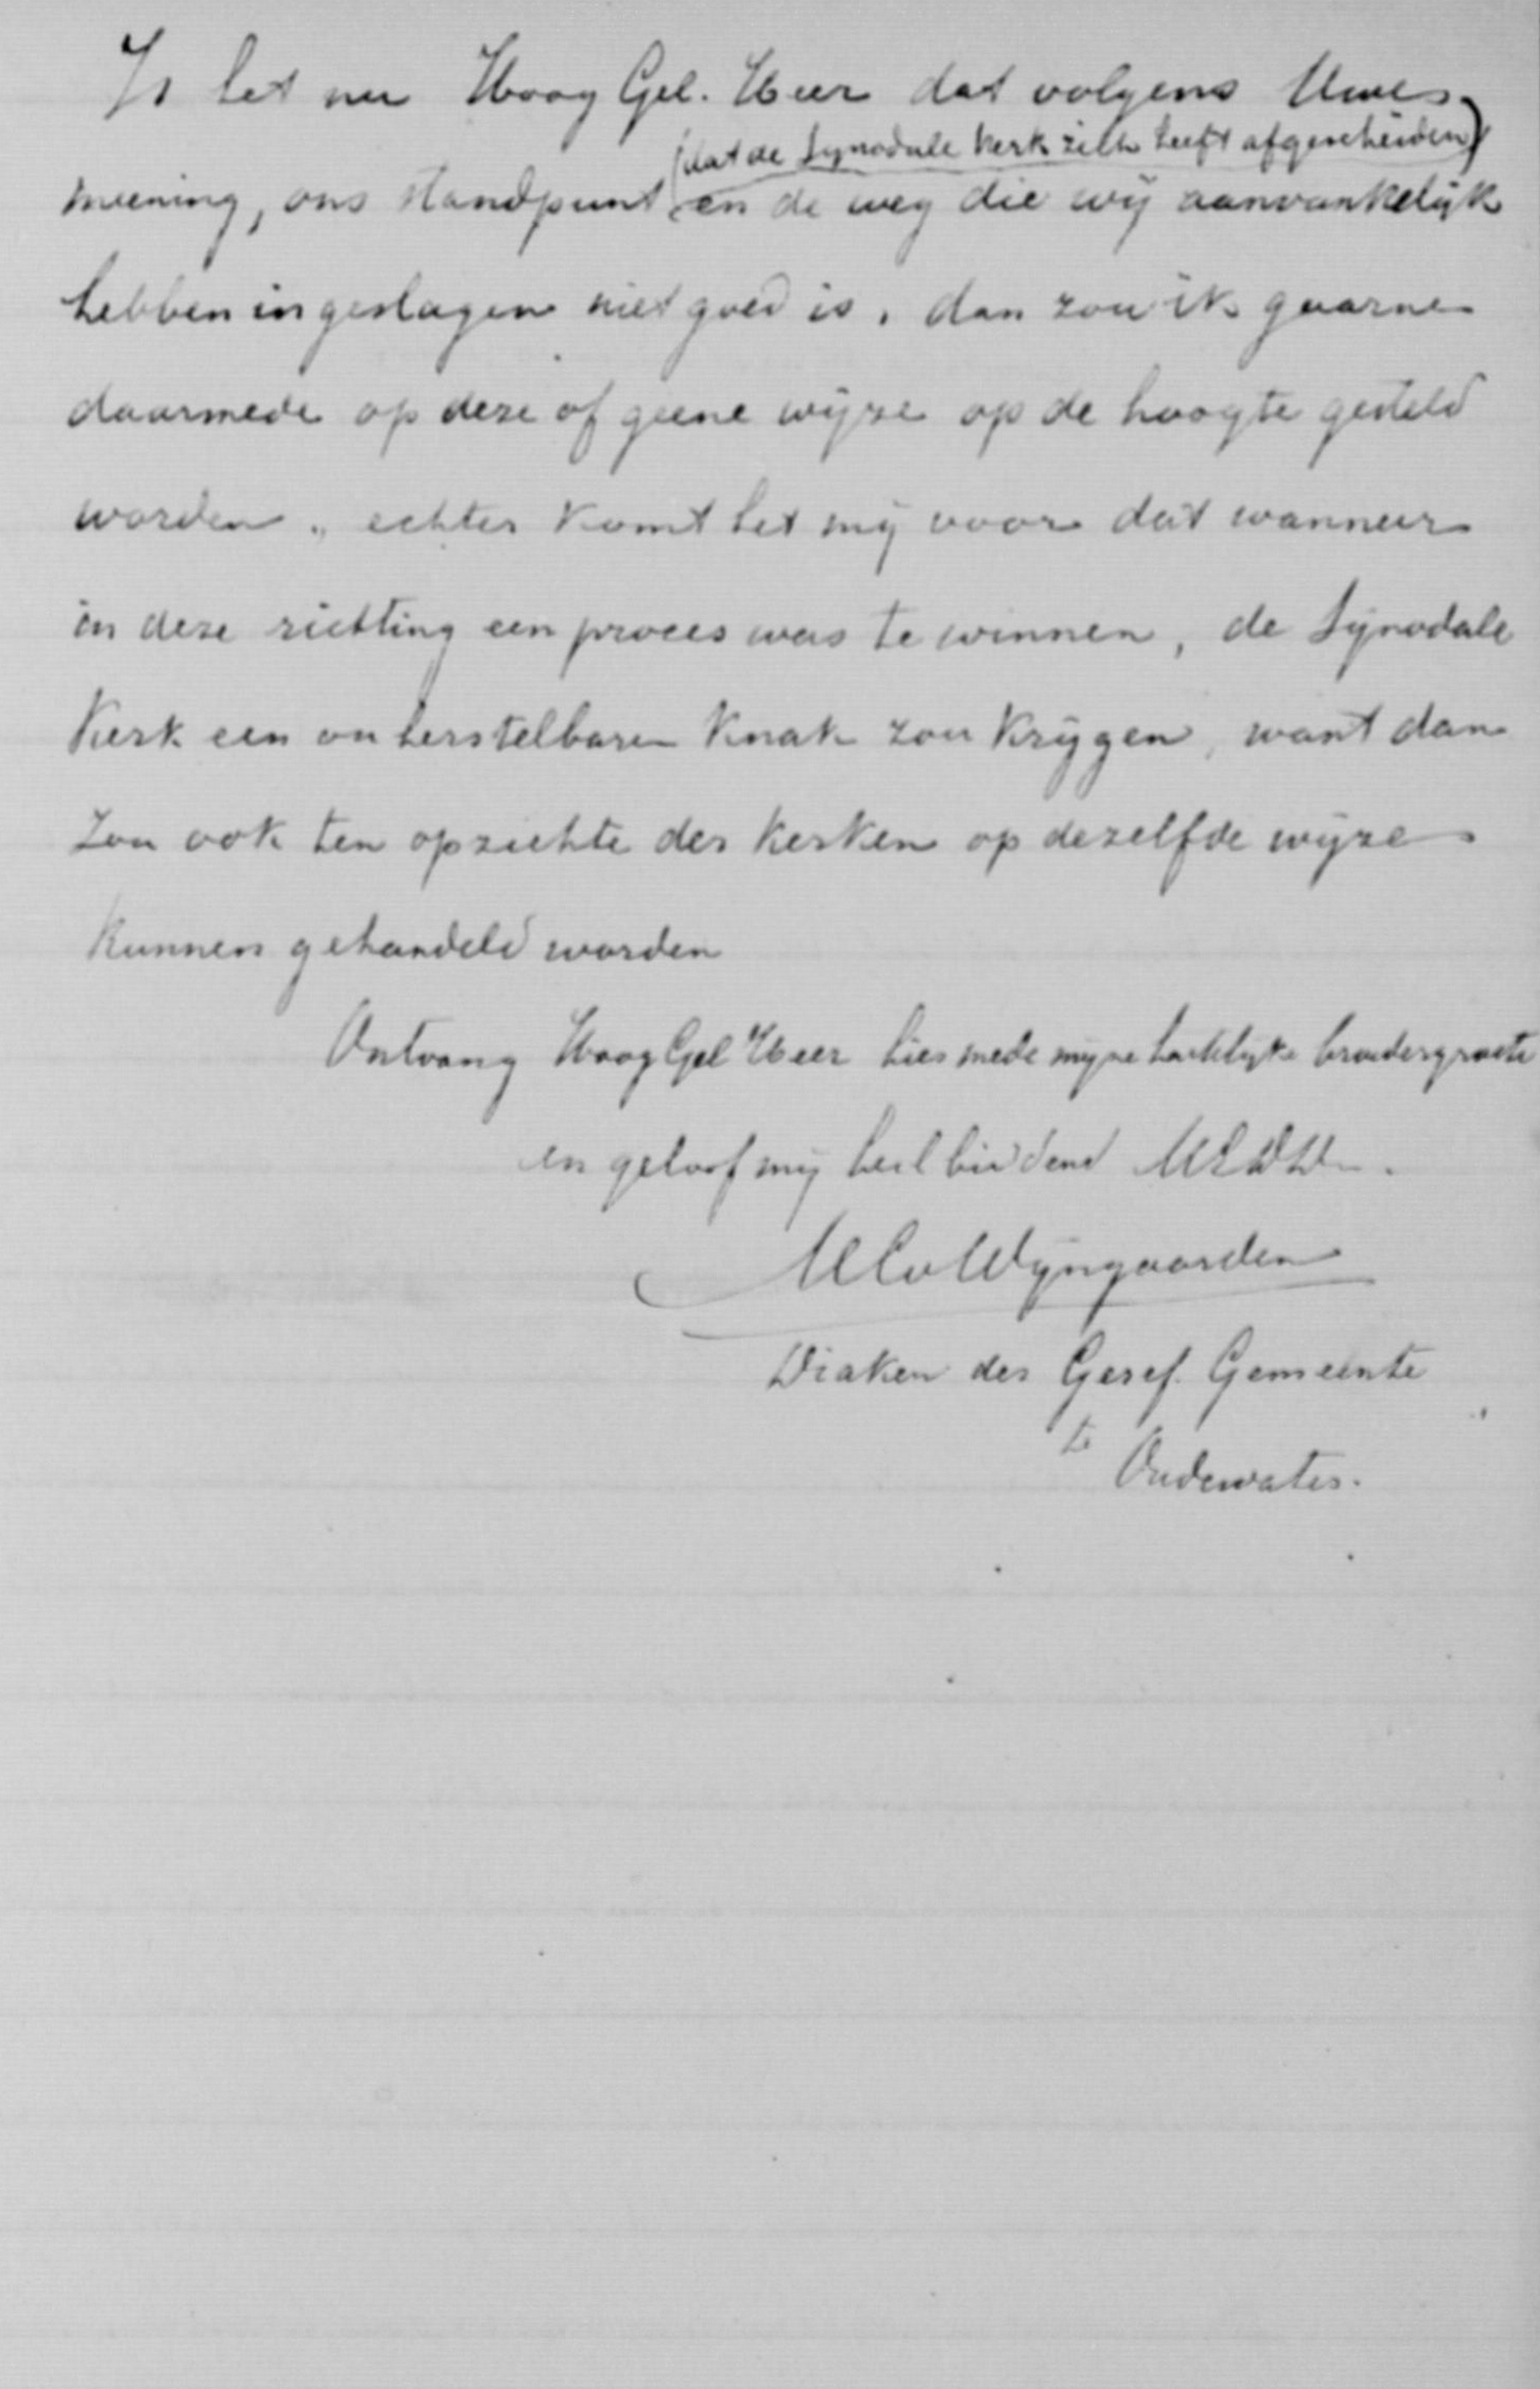 Is het nu Hoog Gel. Heer dat volgens Uwe
(dat de Synodale kerk zelve heeft afgescheiden)
meening, ons standpunt en de weg die wij aanvankelijk
hebben ingeslagen niet goed is, dan zou ik gaarne
daarmede op deze of geene wijze op de hoogte gesteld
worden, echter komt het mij voor dat wanneer
in deze richting een proces was te winnen, de Synodale
Kerk een onherstelbaren knak zou krijgen, want dan
zou ook ten opzichte der kerken op dezelfde wijze
kunnen gehandeld worden
Ontvang Hoog Gel Heer hiermede mijne hartelijke broedergroete
en geloof mij heilbiddend
Wijngaarden
Diaken der Geref. Gemeente
te
Oudewater.